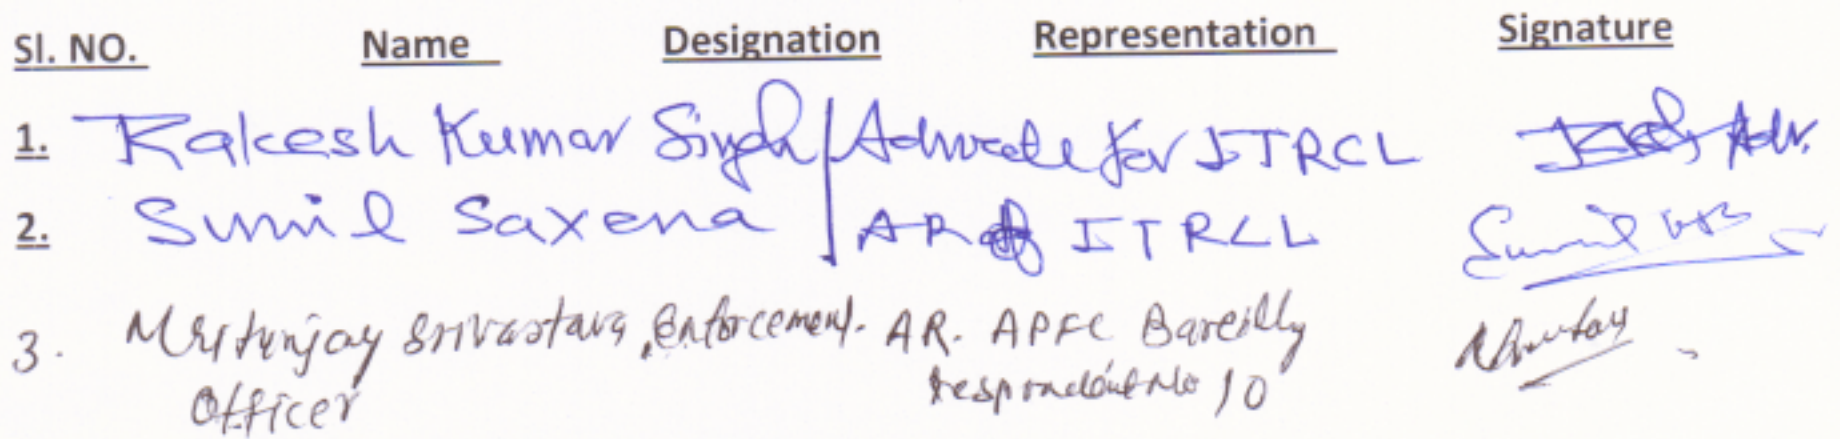 Sl. NO. Name Designation Representation Signature
1. Rakesh Kumar Singh / Advocate for ITRCL Adv.
2. Sunil Saxena / AR of ITRCL Sunil
3. Mritunjay Srivastava, Enforcement. AR. APFC Bareilly
Officer respondent No 10